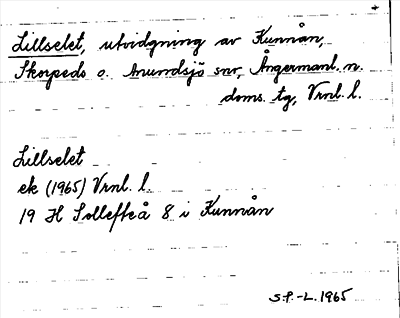 Lillselet, utvidgning av Kunnån,
Skorpeds o. Anundsjö snr, Ångermanl. n.
doms. tg, Vrnl. l.
Lillselet
ek (1965) Vrnl. l.
19 H Sollefteå 8 i Kunnån
S.P.-L. 1965